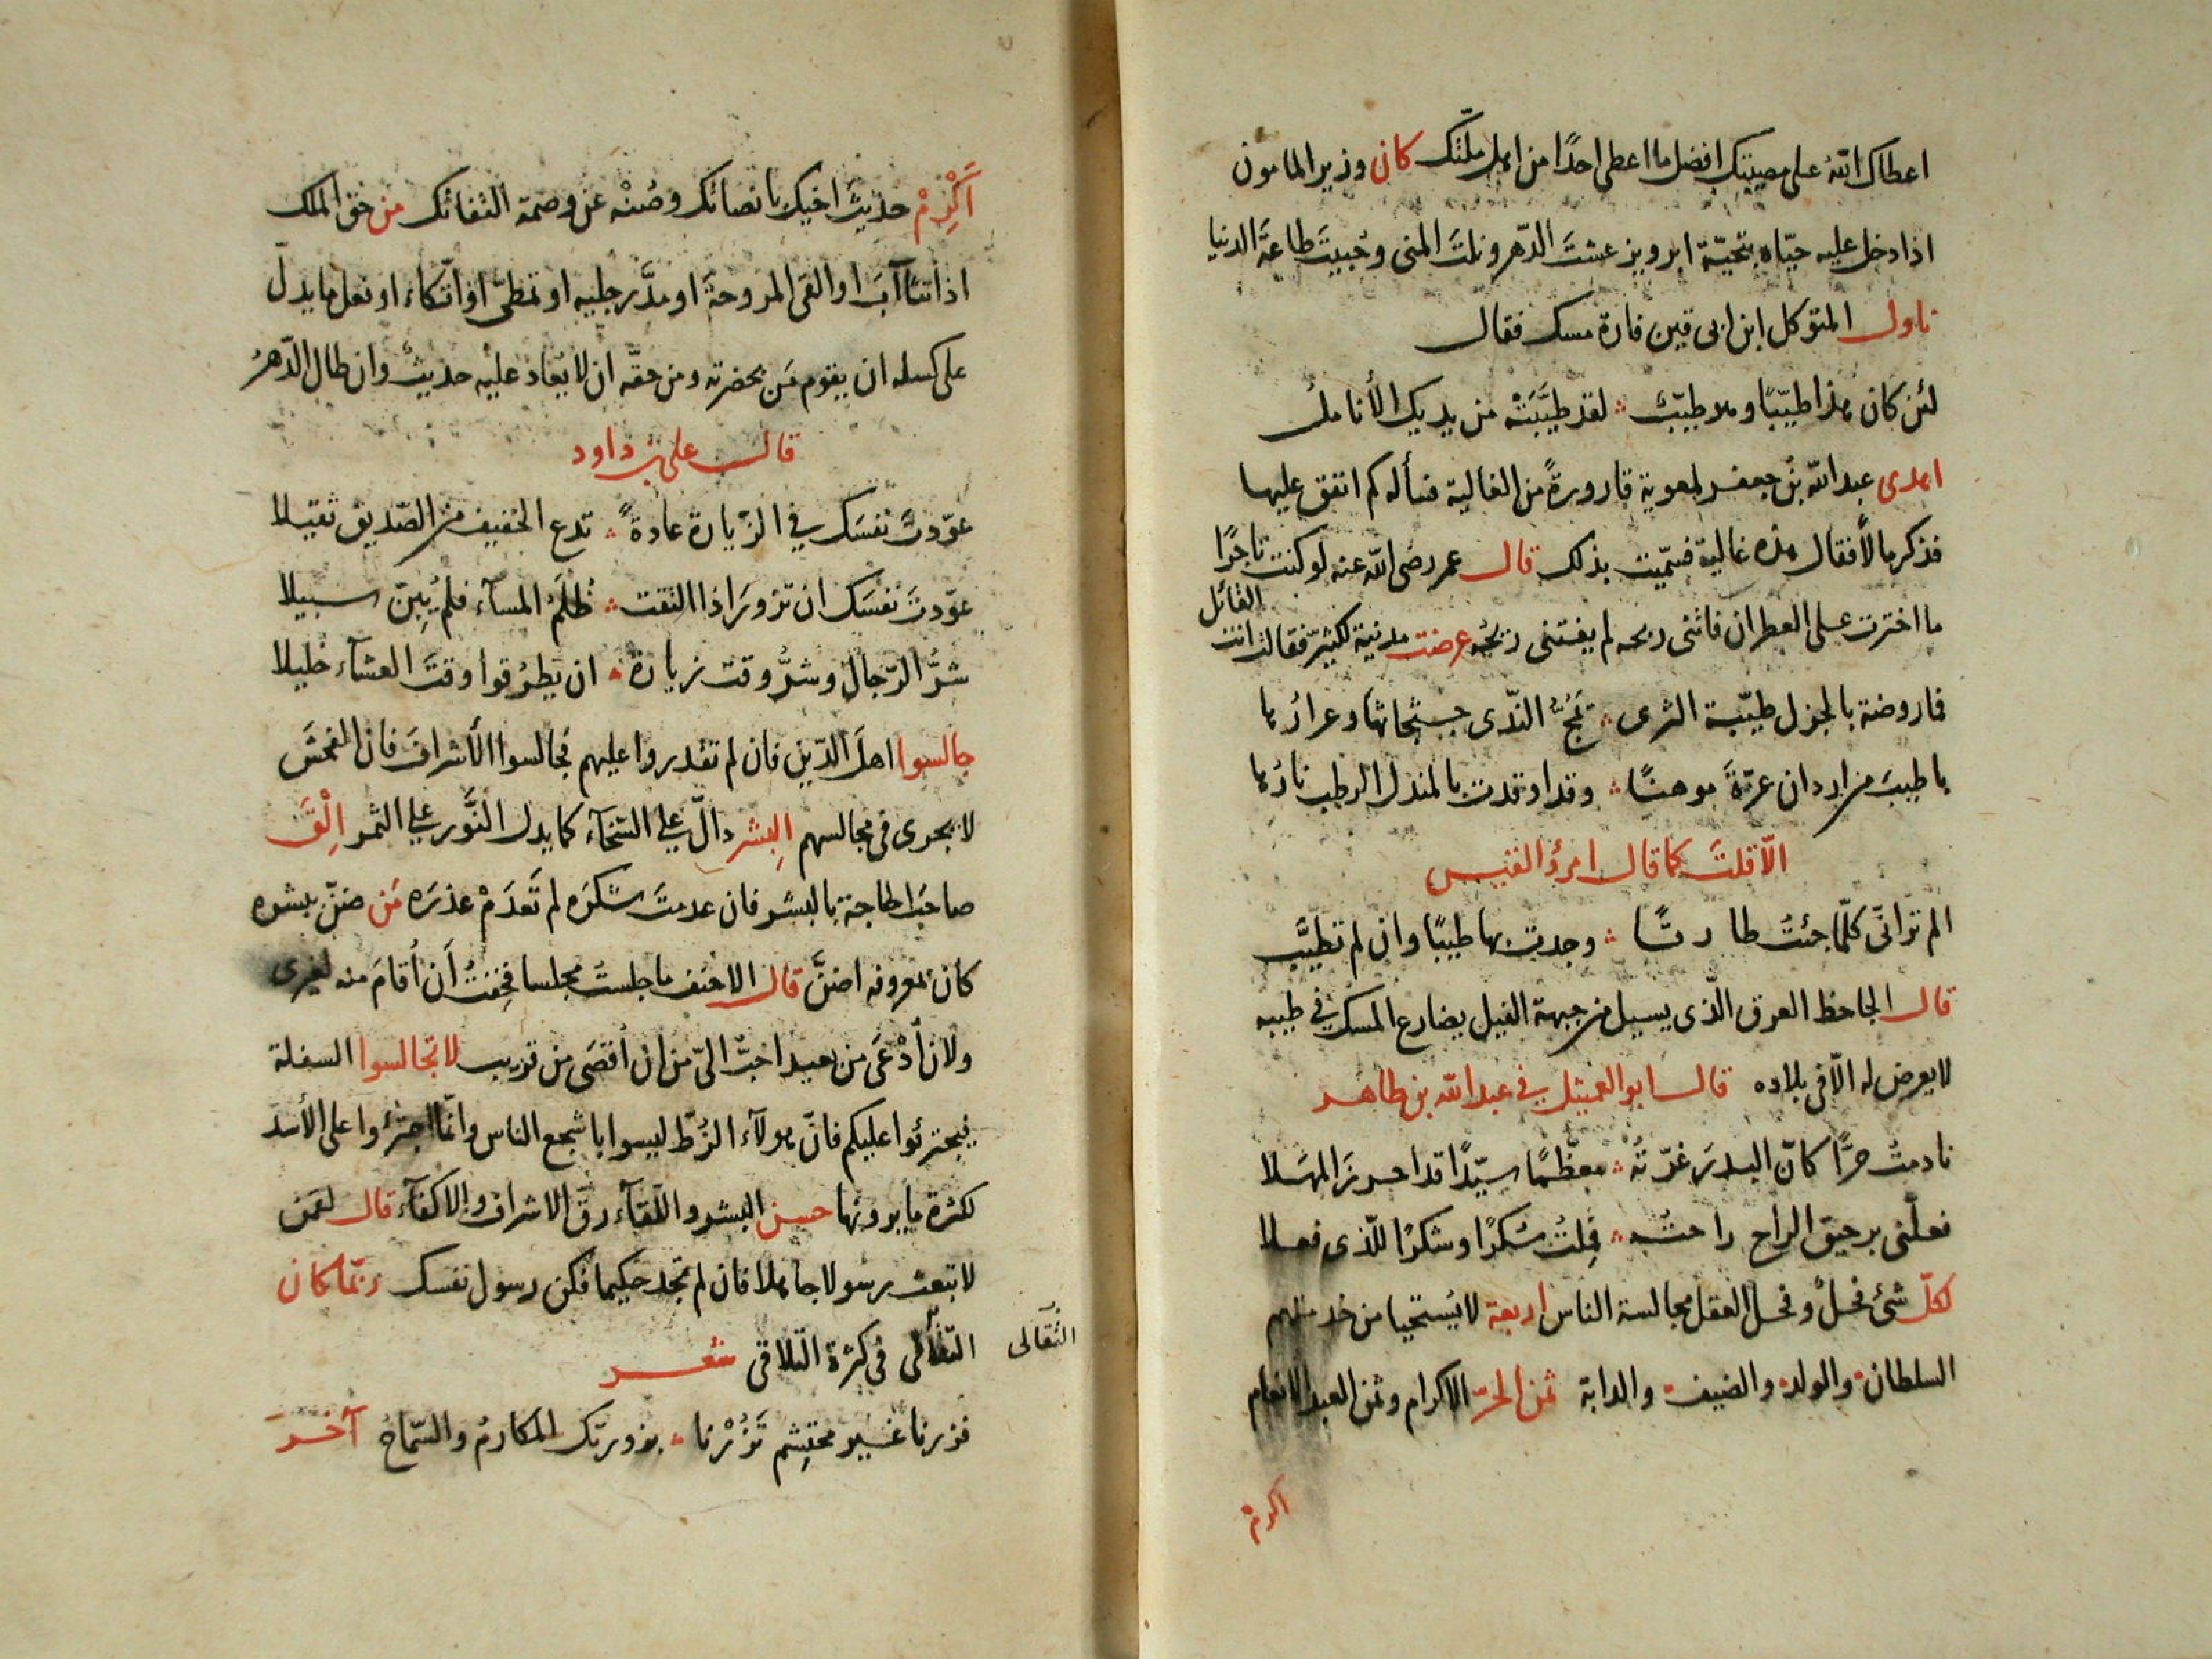 اعطاك الله على مصيبتك افضل ما اعطى احدًا من اهل ملّتك كان وزير المامون
اذا دخل عليه حيّاه بتحيّة ابرويز عشتَ الدّهر ونلتَ المنى وحُبيتَ طاعةَ الدنيا
ناول المتوكل ابن ابى فارة مسك فقال
لئن كان هذا طيّبًا وهو طيّبٌ لقد طيَّبَتْه من يديك الأناملُ
اهدى عبد الله بن جعفر لمعوية قارورةً من الغالية فسأله كم انفق عليها
فذكر مالًا فقال هذه غالية فسمّيت بذلك قال عمر رضى الله عنه لو كنت تاجرًا
ما اخترت على العطر ان فاتنى ربحه لم يفتنى ريحُه عرضت مدنية لكثيّر فقالت انت القائل
فما روضة بالحزل طيّبة الثرى تَمُجُّ النّدى جثجاثها وعرارُها
باطيبَ من اردان عزّةَ موهنًا وقد اوقدت بالمندل الرطب نارُها
الّا قلتَ كما قال امرؤ القيس
الم ترانّى كلّما جئتُ طارقًا وجدت بها طيبًا وان لم تطيَّبِ
قال الجاحظ العرق الّذى يسيل من جبهة الفيل يضارع المسك في طيبه
لا يعرض له الّا فى بلاده قال ابو العميثل في عبد الله بن طاهر
نادمتُ حرًّا كانّ البدرَ غرّتُه معظّمًا سيّدًا قد احرز المهَلا
فعلّنى برحيق الراح راحتُه فمِلتُ سُكرًا وشكرًا للّذى فعلا
لكلّ شئ فحلٌ وفحل العقل مجالسة الناس اربعة لا يُستحيا من خدمتهم
السلطان والولد والضيف والدابة ثمن الحرّ الاكرام وثمن العبد الانعام
اكرمْ
أَكْرِمْ حديثَ اخيك بانصاتك وصُنْه عن وصمة التفاتك من حق الملك
اذا تثاآبَ او القى المروحةَ او مدَّ رجليه او تمطّى او اتّكاء او فعل ما يدلّ
على كسله ان يقوم مَن بحضرته ومن حقّه ان لا يُعادَ عليه حديثٌ وان طال الدّهرُ
قال على بن داود
عوّدتَ نفسَك في الزّيارة عادةً تدع الخفيف من الصّديق ثقيلا
عوّدتَ نفسَك ان تزورَ اذا التقت ظُلَمُ المسآء فلم يُبِنّ سبيلا
شرُّ الرّجال وشرُّ وقت زيارة ان يطرُقوا وقتَ العشآء خليلا
جالسوا اهلَ الدّين فان لم تقدروا عليهم فجالسوا الأشرافَ فان الفحشَ
لا يجرى فى مجالسهم البِشر دالّ على السّخآء كما يدل النَّور على الثمر اِلْقَ
صاحبَ الحاجة بالبشر فان عدمتَ شكرَه لم تَعدَمْ عذرَه مَن ضنّ ببشره
كان بمعروفه اضنَّ قال الاحنف ما جلستُ مجلسا فخِفتُ أن أُقامَ منه لغيرى
ولان أُدْعَى من بعيد احبُّ الىّ من ان أُقصَى من قريب لا تجالسوا السفلة
فيجترئوا عليكم فانّ هولآء الزُطّ ليسوا باشجع الناس وانّما اجترءوا على الأسد
لكثرة ما يرونها حسن البشر واللقآء رقّ الاشراف والاكفآء قال لقمن
لا تبعث رسولا جاهلا فان لم تجد حكيما فكن رسول نفسك ربّما كان
التّقالى فى كثرة التّلاقى شعر
التَّقالى
فزرنا غير محتشم تَزُرْنا بزورتك المكارمُ والسّماحُ آخر